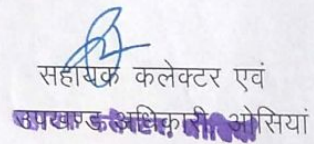 सहायक कलेक्टर एवं
उपखण्ड अधिकारी ओसियां